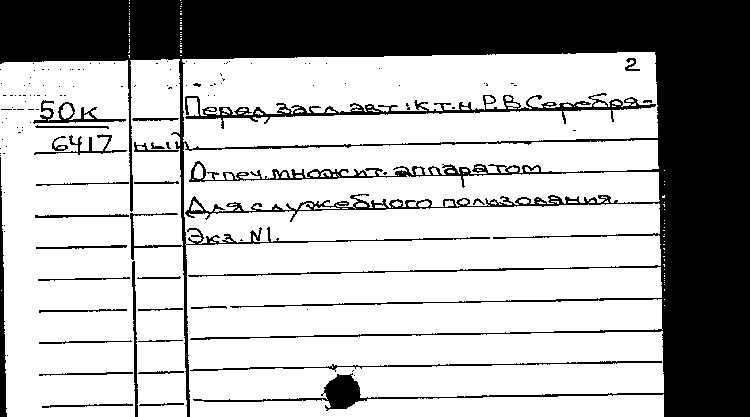 2
50к Перед загл. авт.: к.т.н. Р.В. Серебря-
6417 ный.
Отпеч. множит. аппаратом.
Для служебного пользования.
Экз. N1.